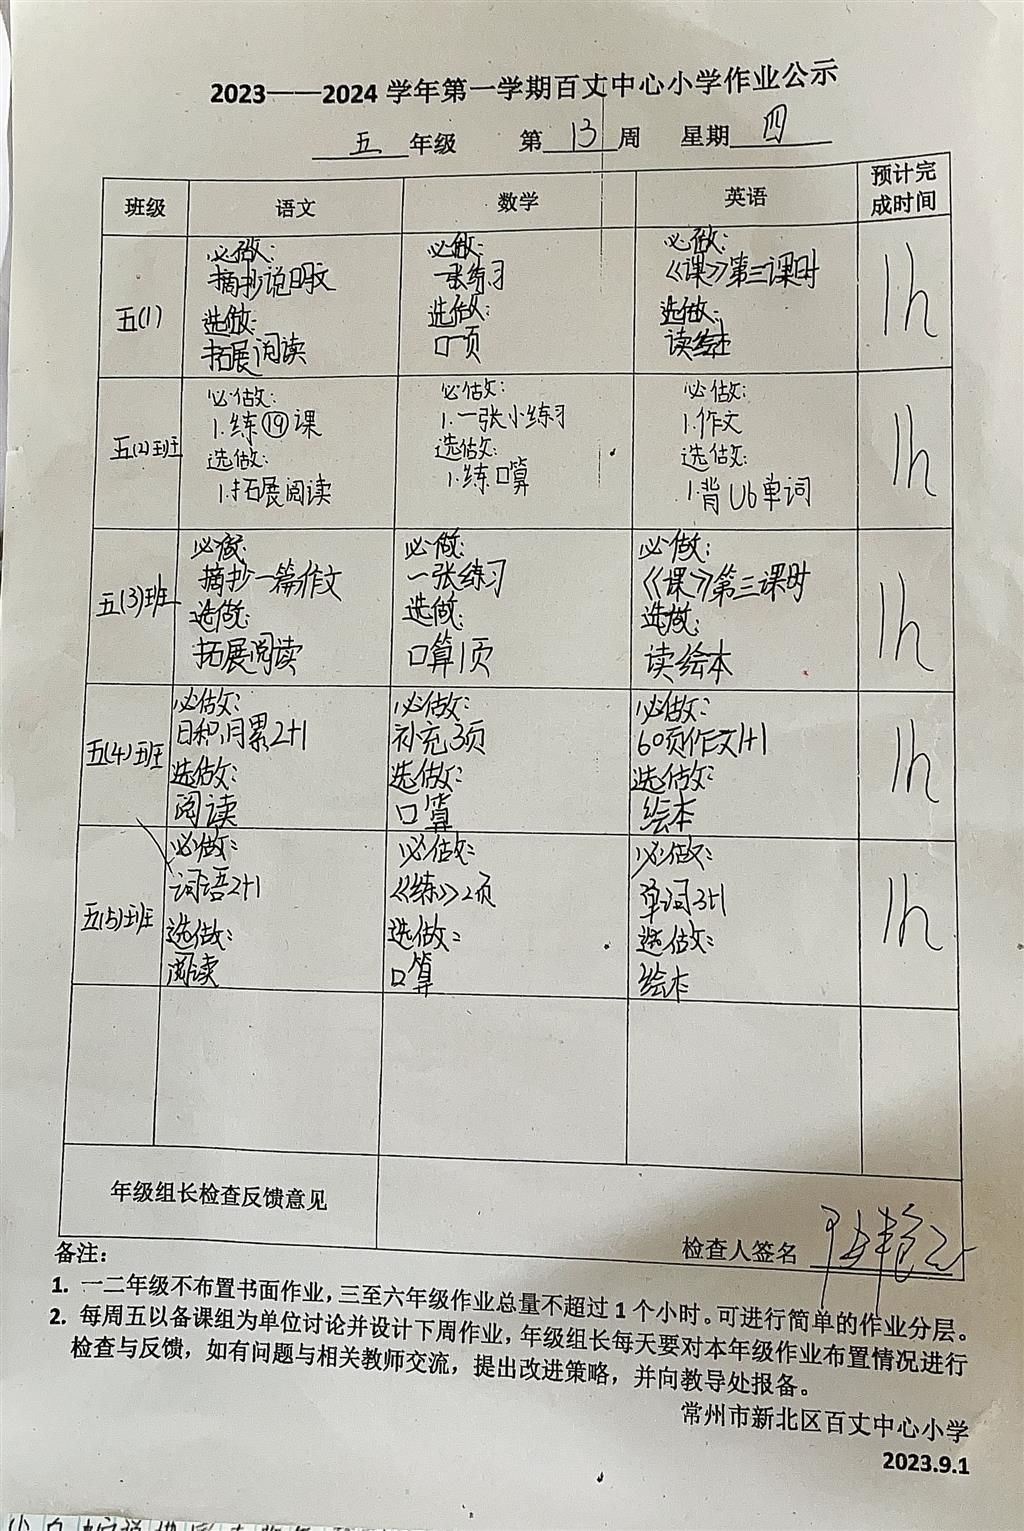 2023——2024 学年第一学期百丈中心小学作业公示
五 年级 第 13 周 星期 四
班级 语文 数学 英语 预计完成时间
五(1)
必做:
摘抄说明文
选做:
拓展阅读
必做:
一张练习
选做:
口一页
必做:
《课》第三课时
选做:
读绘本
1h
五(2)班
必做:
1.练⑲课
选做:
1.拓展阅读
必做:
1.一张小练习
选做:
1.练口算
必做:
1.作文
选做:
1.背U6单词
1h
五(3)班
必做:
摘抄一篇作文
选做:
拓展阅读
必做:
一张练习
选做:
口算1页
必做:
《课》第三课时
选做:
读绘本
1h
五(4)班
必做:
日积月累2+1
选做:
阅读
必做:
补充3页
选做:
口算
必做:
60页作文1+1
选做:
绘本
1h
五(5)班
必做:
词语2+1
选做:
阅读
必做:
《练》2页
选做:
口算
必做:
单词3+1
选做:
绘本
1h
年级组长检查反馈意见
检查人签名
备注:
1. 一二年级不布置书面作业，三至六年级作业总量不超过 1 个小时。可进行简单的作业分层。
2. 每周五以备课组为单位讨论并设计下周作业，年级组长每天要对本年级作业布置情况进行
检查与反馈，如有问题与相关教师交流，提出改进策略，并向教导处报备。
常州市新北区百丈中心小学
2023.9.1